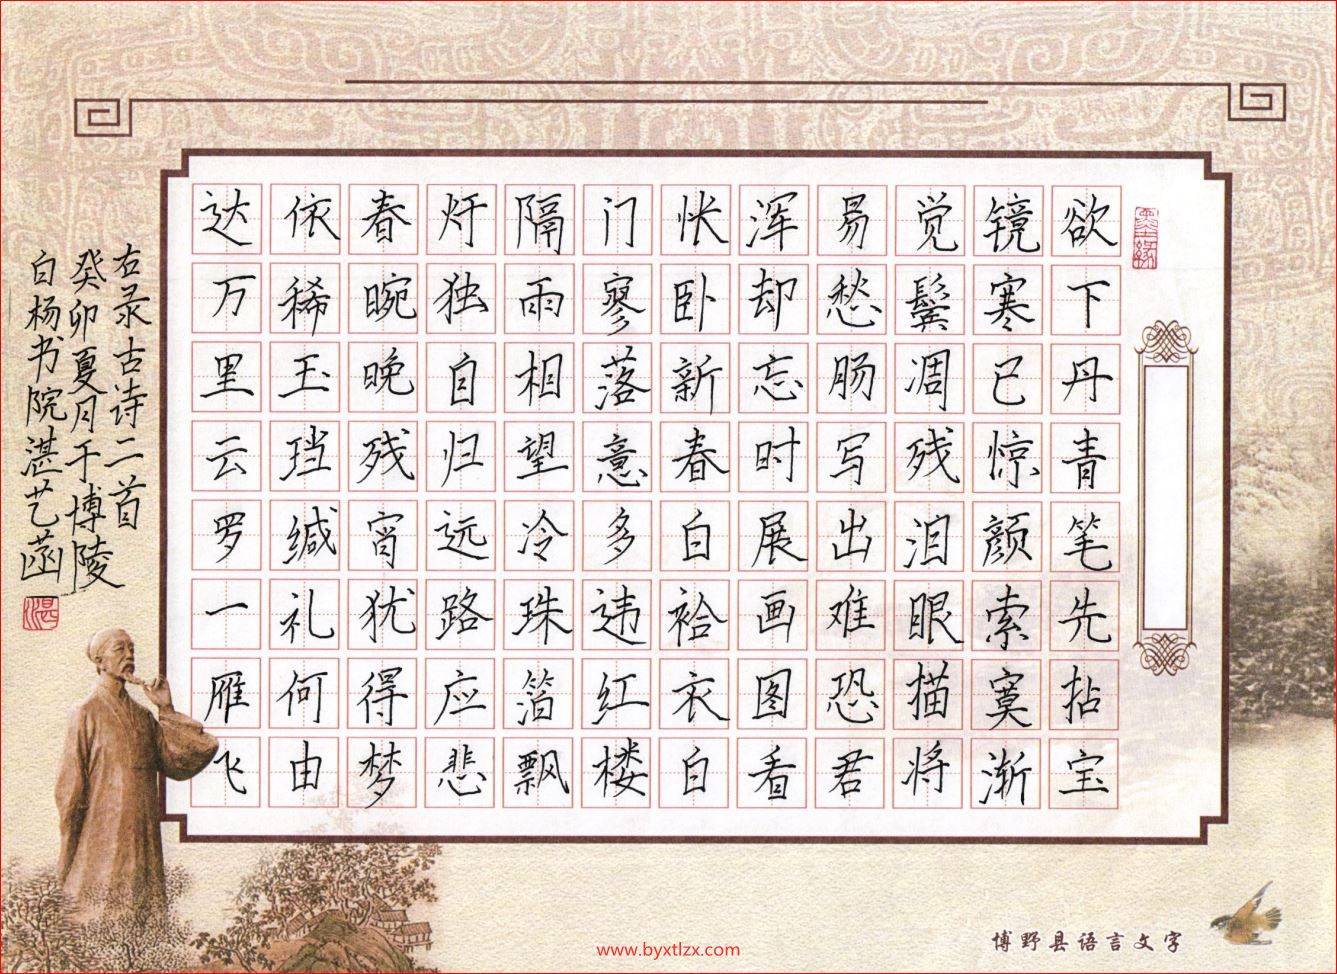 墨缘
欲下丹青笔先拈宝
镜寒已惊颜索寞渐
觉鬓凋残泪眼描将
易愁肠写出难恐君
浑却忘时展画图看
怅卧新春白袷衣白
门寥落意多违红楼
隔雨相望冷珠箔飘
灯独自归远路应悲
春晼晚残宵犹得梦
依稀玉珰缄札何由
达万里云罗一雁飞
右录古诗二首
癸卯夏月于博陵
白杨书院湛艺菡
湛
博野县语言文字
www.byxtlzx.com